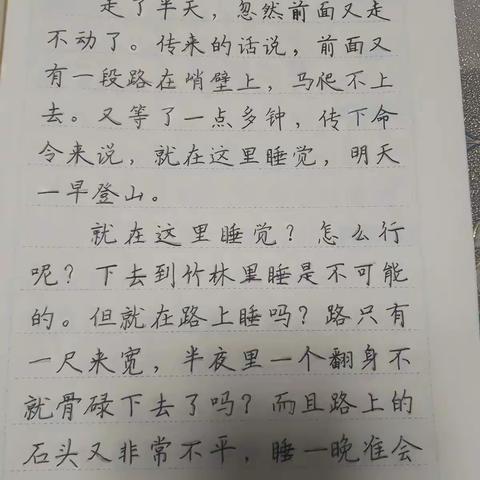 走了半天，忽然前面又走
不动了。传来的话说，前面又
有一段路在峭壁上，马爬不上
去。又等了一点多钟，传下命
令来说，就在这里睡觉，明天
一早登山。
就在这里睡觉？怎么行
呢？下去到竹林里睡是不可能
的。但就在路上睡吗？路只有
一尺来宽，半夜里一个翻身不
就骨碌下去了吗？而且路上的
石头又非常不平，睡一晚准会